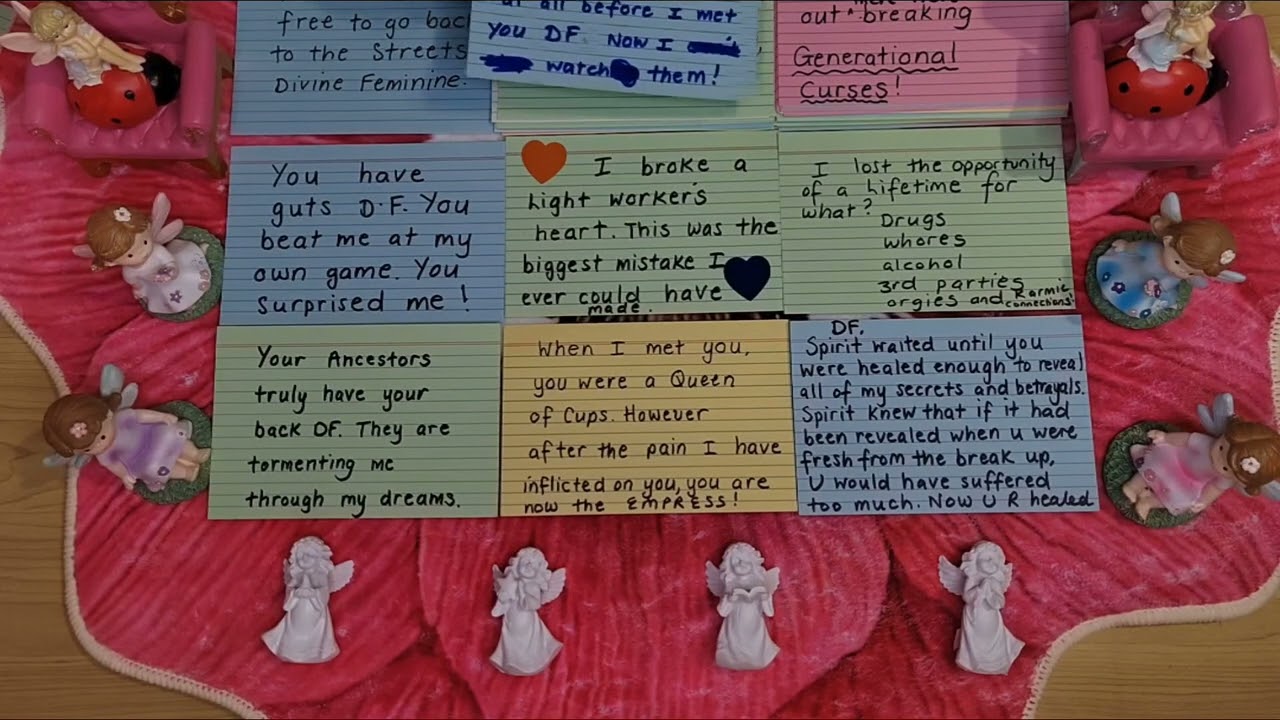 free to go back
to the Streets
Divine Feminine.
at all before I met
you DF. Now I
watch them!
out breaking
Generational
Curses!
You have
guts D.F. You
beat me at my
own game. You
Surprised me!
I broke a
Light worker's
heart. This was the
biggest mistake I
ever could have
made.
I lost the opportunity
of a Lifetime for
what?
Drugs
whores
alcohol
3rd parties
orgies and Karmic
connections!
Your Ancestors
truly have your
back DF. They are
tormenting me
through my dreams.
When I met you,
you were a Queen
of Cups. However
after the pain I have
inflicted on you, you are
now the EMPRESS!
DF,
Spirit waited until you
were healed enough to reveal
all of my secrets and betrayals.
Spirit knew that if it had
been revealed when u were
fresh from the break up,
U would have suffered
too much. Now U R healed